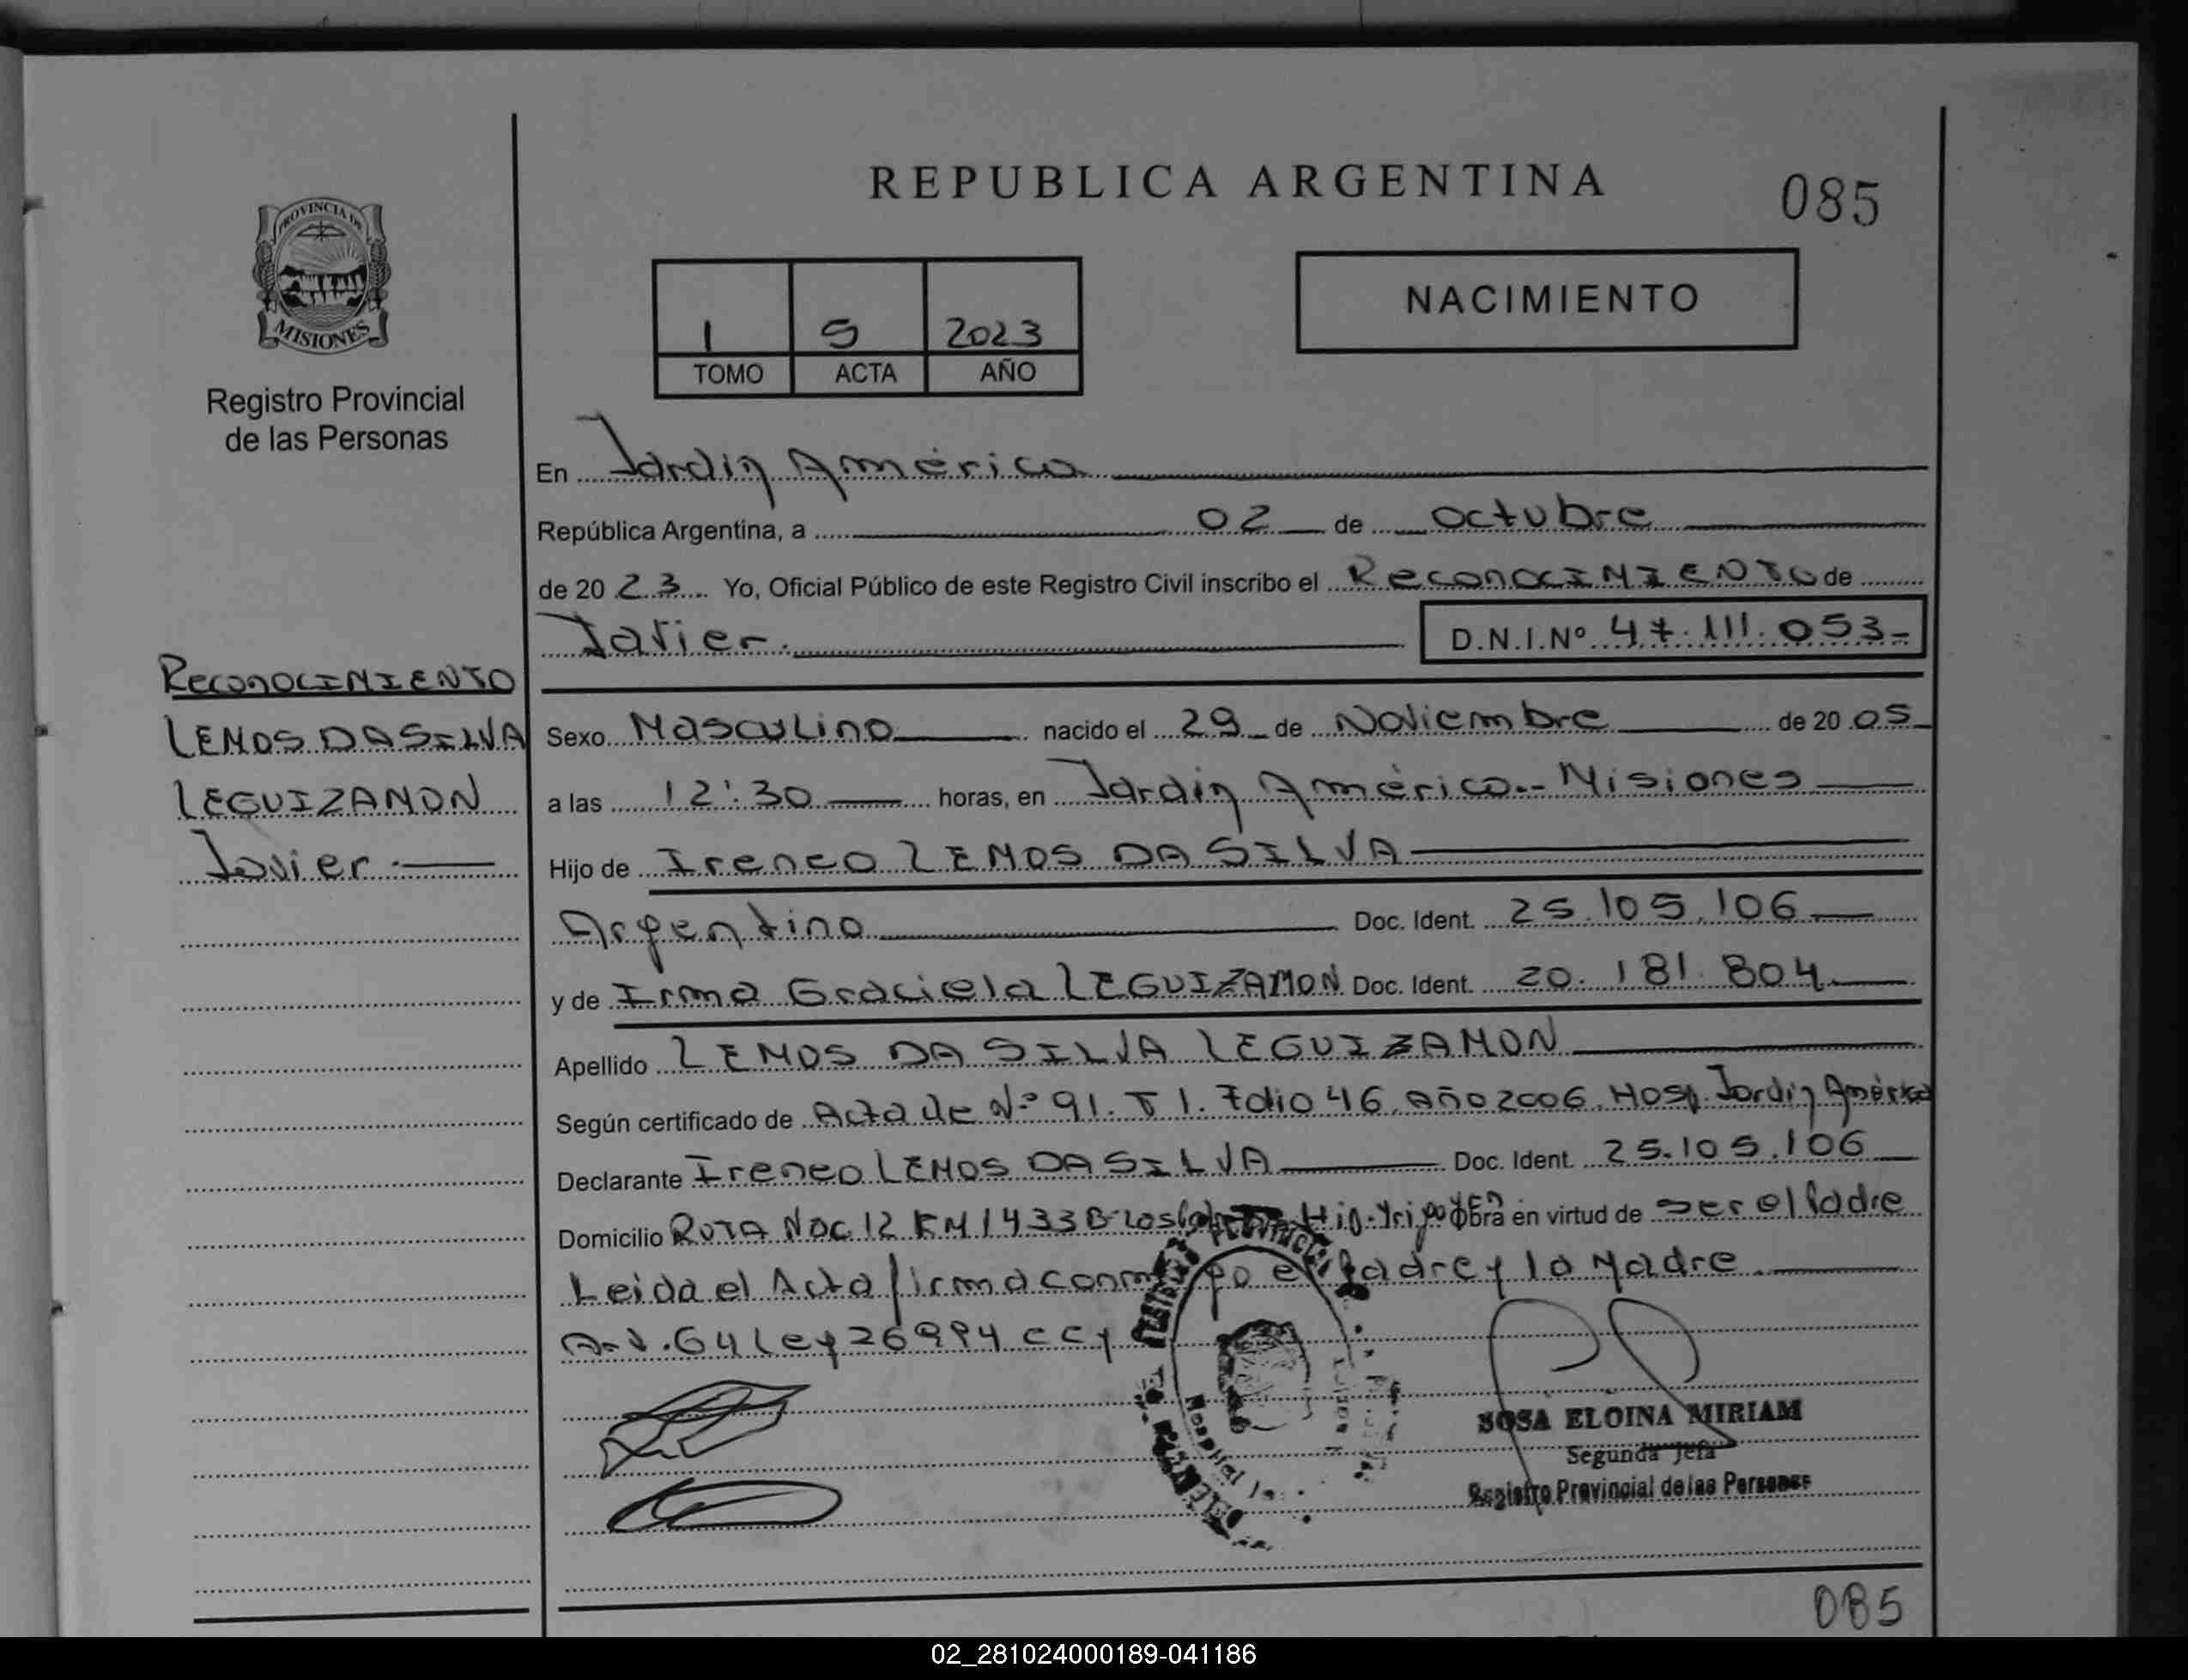 REPUBLICA ARGENTINA
085
PROVINCIA DE
MISIONES
Registro Provincial
de las Personas
1 5 2023
TOMO ACTA AÑO
NACIMIENTO
En Jardin América
República Argentina, a 02 de octubre
de 2023 Yo, Oficial Público de este Registro Civil inscribo el ReconocIMIENTO de
Javier. D.N.I.Nº 47.111.053-
ReconocIMIENTO
LEMOS DA SILVA
LEGUIZAMON
Javier.-
Sexo Masculino nacido el 29 de Noviembre de 2005
a las 12:30 horas, en Jardin América.- Misiones
Hijo de Ireneo LEMOS DA SILVA
Argentino Doc. Ident. 25.105.106
y de Irma Graciela LEGUIZAMON Doc. Ident. 20.181.804
Apellido LEMOS DA SILVA LEGUIZAMON
Según certificado de Acta de Nº 91. T 1. Folio 46. Año 2006. Hosp. Jardin América
Declarante Ireneo LEMOS DA SILVA Doc. Ident. 25.105.106
Domicilio RUTA Nac 12 KM 1433 Hip. Yrigoyen Obra en virtud de ser el Padre
Leida el Acta firma conmigo el Padre y la Madre
Art. 64 Ley 26994 CCy
Hospital
SOSA ELOINA MIRIAM
Segunda Jefa
Registro Provincial de las Personas
085
02_281024000189-041186